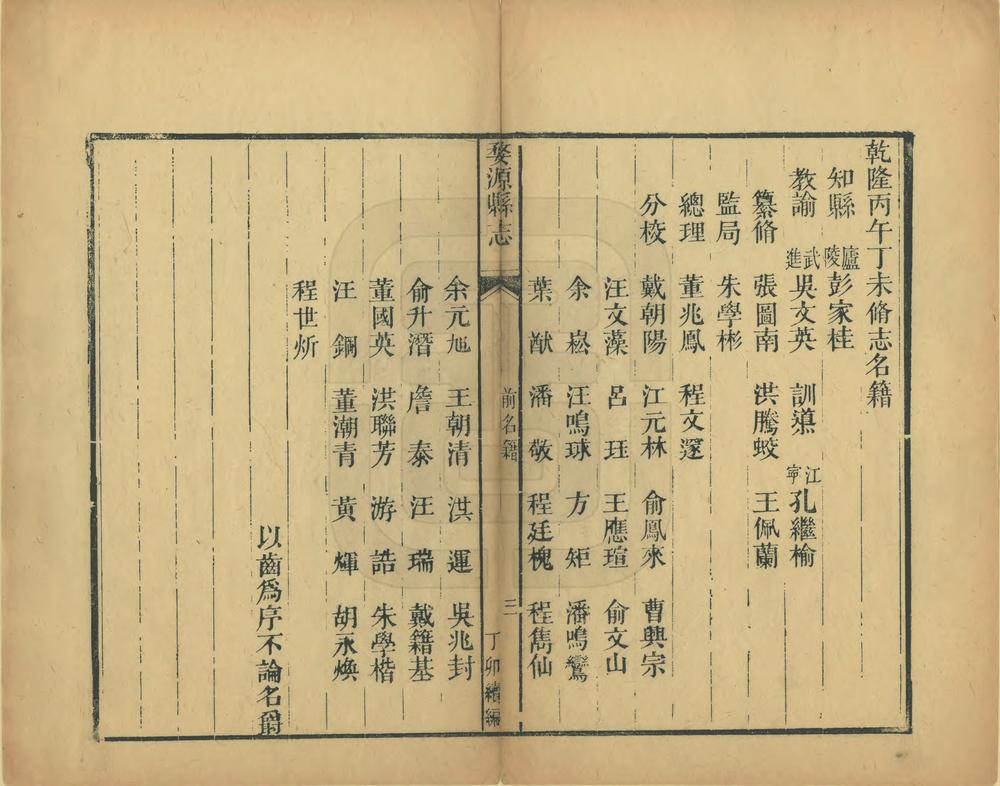 乾隆丙午丁未脩志名籍
知縣 廬陵 彭家桂
教諭 武進 吳文英 訓導 江寧 孔繼榆
纂脩 張圖南 洪騰蛟 王佩蘭
監局 朱學彬
總理 董兆鳳 程文邃
分校 戴朝陽 江元林 俞鳳來 曹興宗
汪文藻 呂珏 王應瑄 俞文山
余崧 汪鳴球 方矩 潘鳴鸞
葉猷 潘敬 程廷槐 程雋仙
婺源縣志 前名籍 三 丁卯續編
余元旭 王朝清 洪運 吳兆封
俞升潛 詹泰 汪瑞 戴籍基
董國英 洪聯芳 游誥 朱學楷
汪鋼 董潮青 黃煇 胡永煥
程世炘
以齒爲序不論名爵